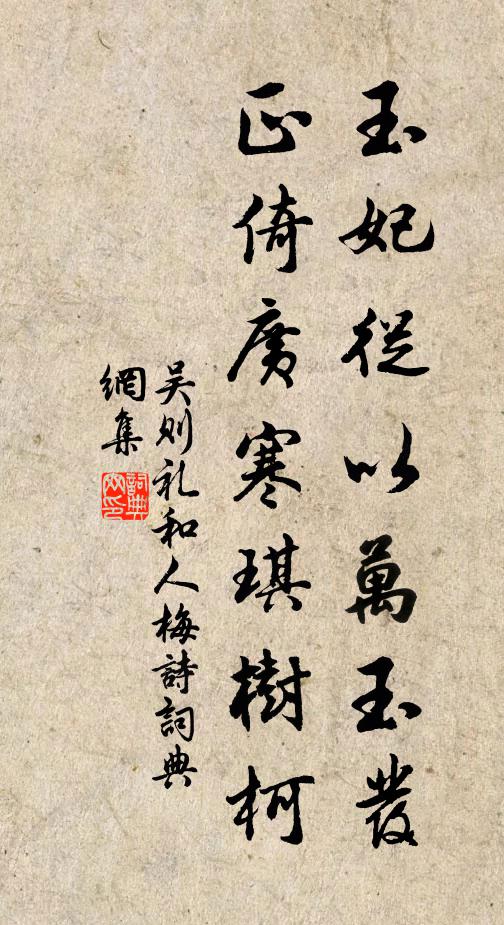 玉妃從以萬玉叢
正倚廣寒琪樹柯
吳則礼和人梅詩詞典
網集
詞典
网印